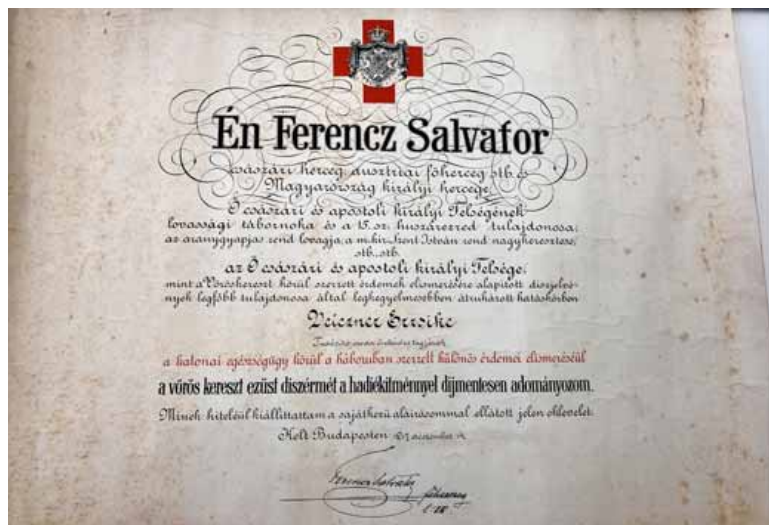 Én Ferencz Salvator
császári herceg, ausztriai főherceg stb. és
Magyarország királyi hercege,
Ő császári és apostoli királyi Felségének
lovassági tábornoka és a 15. sz. huszárezred tulajdonosa;
az aranygyapjas rend lovagja, a m. kir. Szent István rend nagykeresztese,
stb., stb.
az Ő császári és apostoli királyi Felsége,
mint a Vöröskereszt körül szerzett érdemek elismerésére alapított díszjelvé-
nyek legfőbb tulajdonosa által leghegyelmesebben átruházott hatáskörben
Veiczner Erzsike
a katonai egészségügy körül a háboruban szerzett különös érdemei elismeréséül
a vörös kereszt ezüst díszérmét a hadiékítménnyel díjmentesen adományozom.
Minek hiteléül kiállíttattam a sajátkezű aláírásommal ellátott jelen oklevelet.
Kelt Budapesten
Ferencz Salvator
főherceg